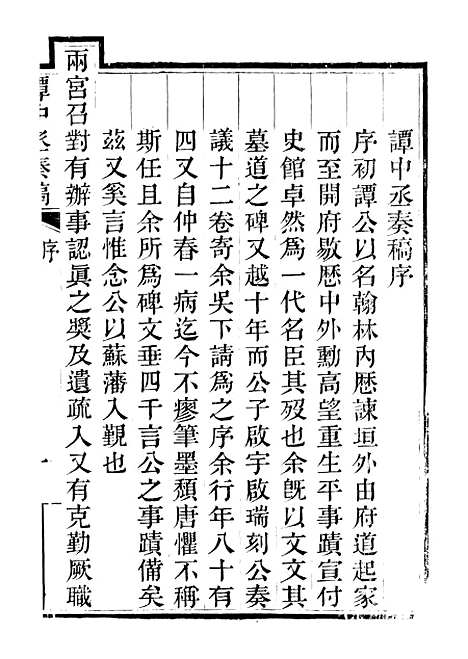 譚中丞奏稿序
序初譚公以名翰林內歷諫垣外由府道起家
而至開府敭歷中外勳高望重生平事蹟宣付
史館卓然爲一代名臣其歿也余旣以文文其
墓道之碑又越十年而公子啟宇啟瑞刻公奏
議十二卷寄余吳下請爲之序余行年八十有
四又自仲春一病迄今不瘳筆墨頹唐懼不稱
斯任且余所爲碑文垂四千言公之事蹟備矣
茲又奚言惟念公以蘇藩入覲也
兩宮召對有辦事認眞之獎及遺疏入又有克勤厥職
譚中丞奏稿 序 一